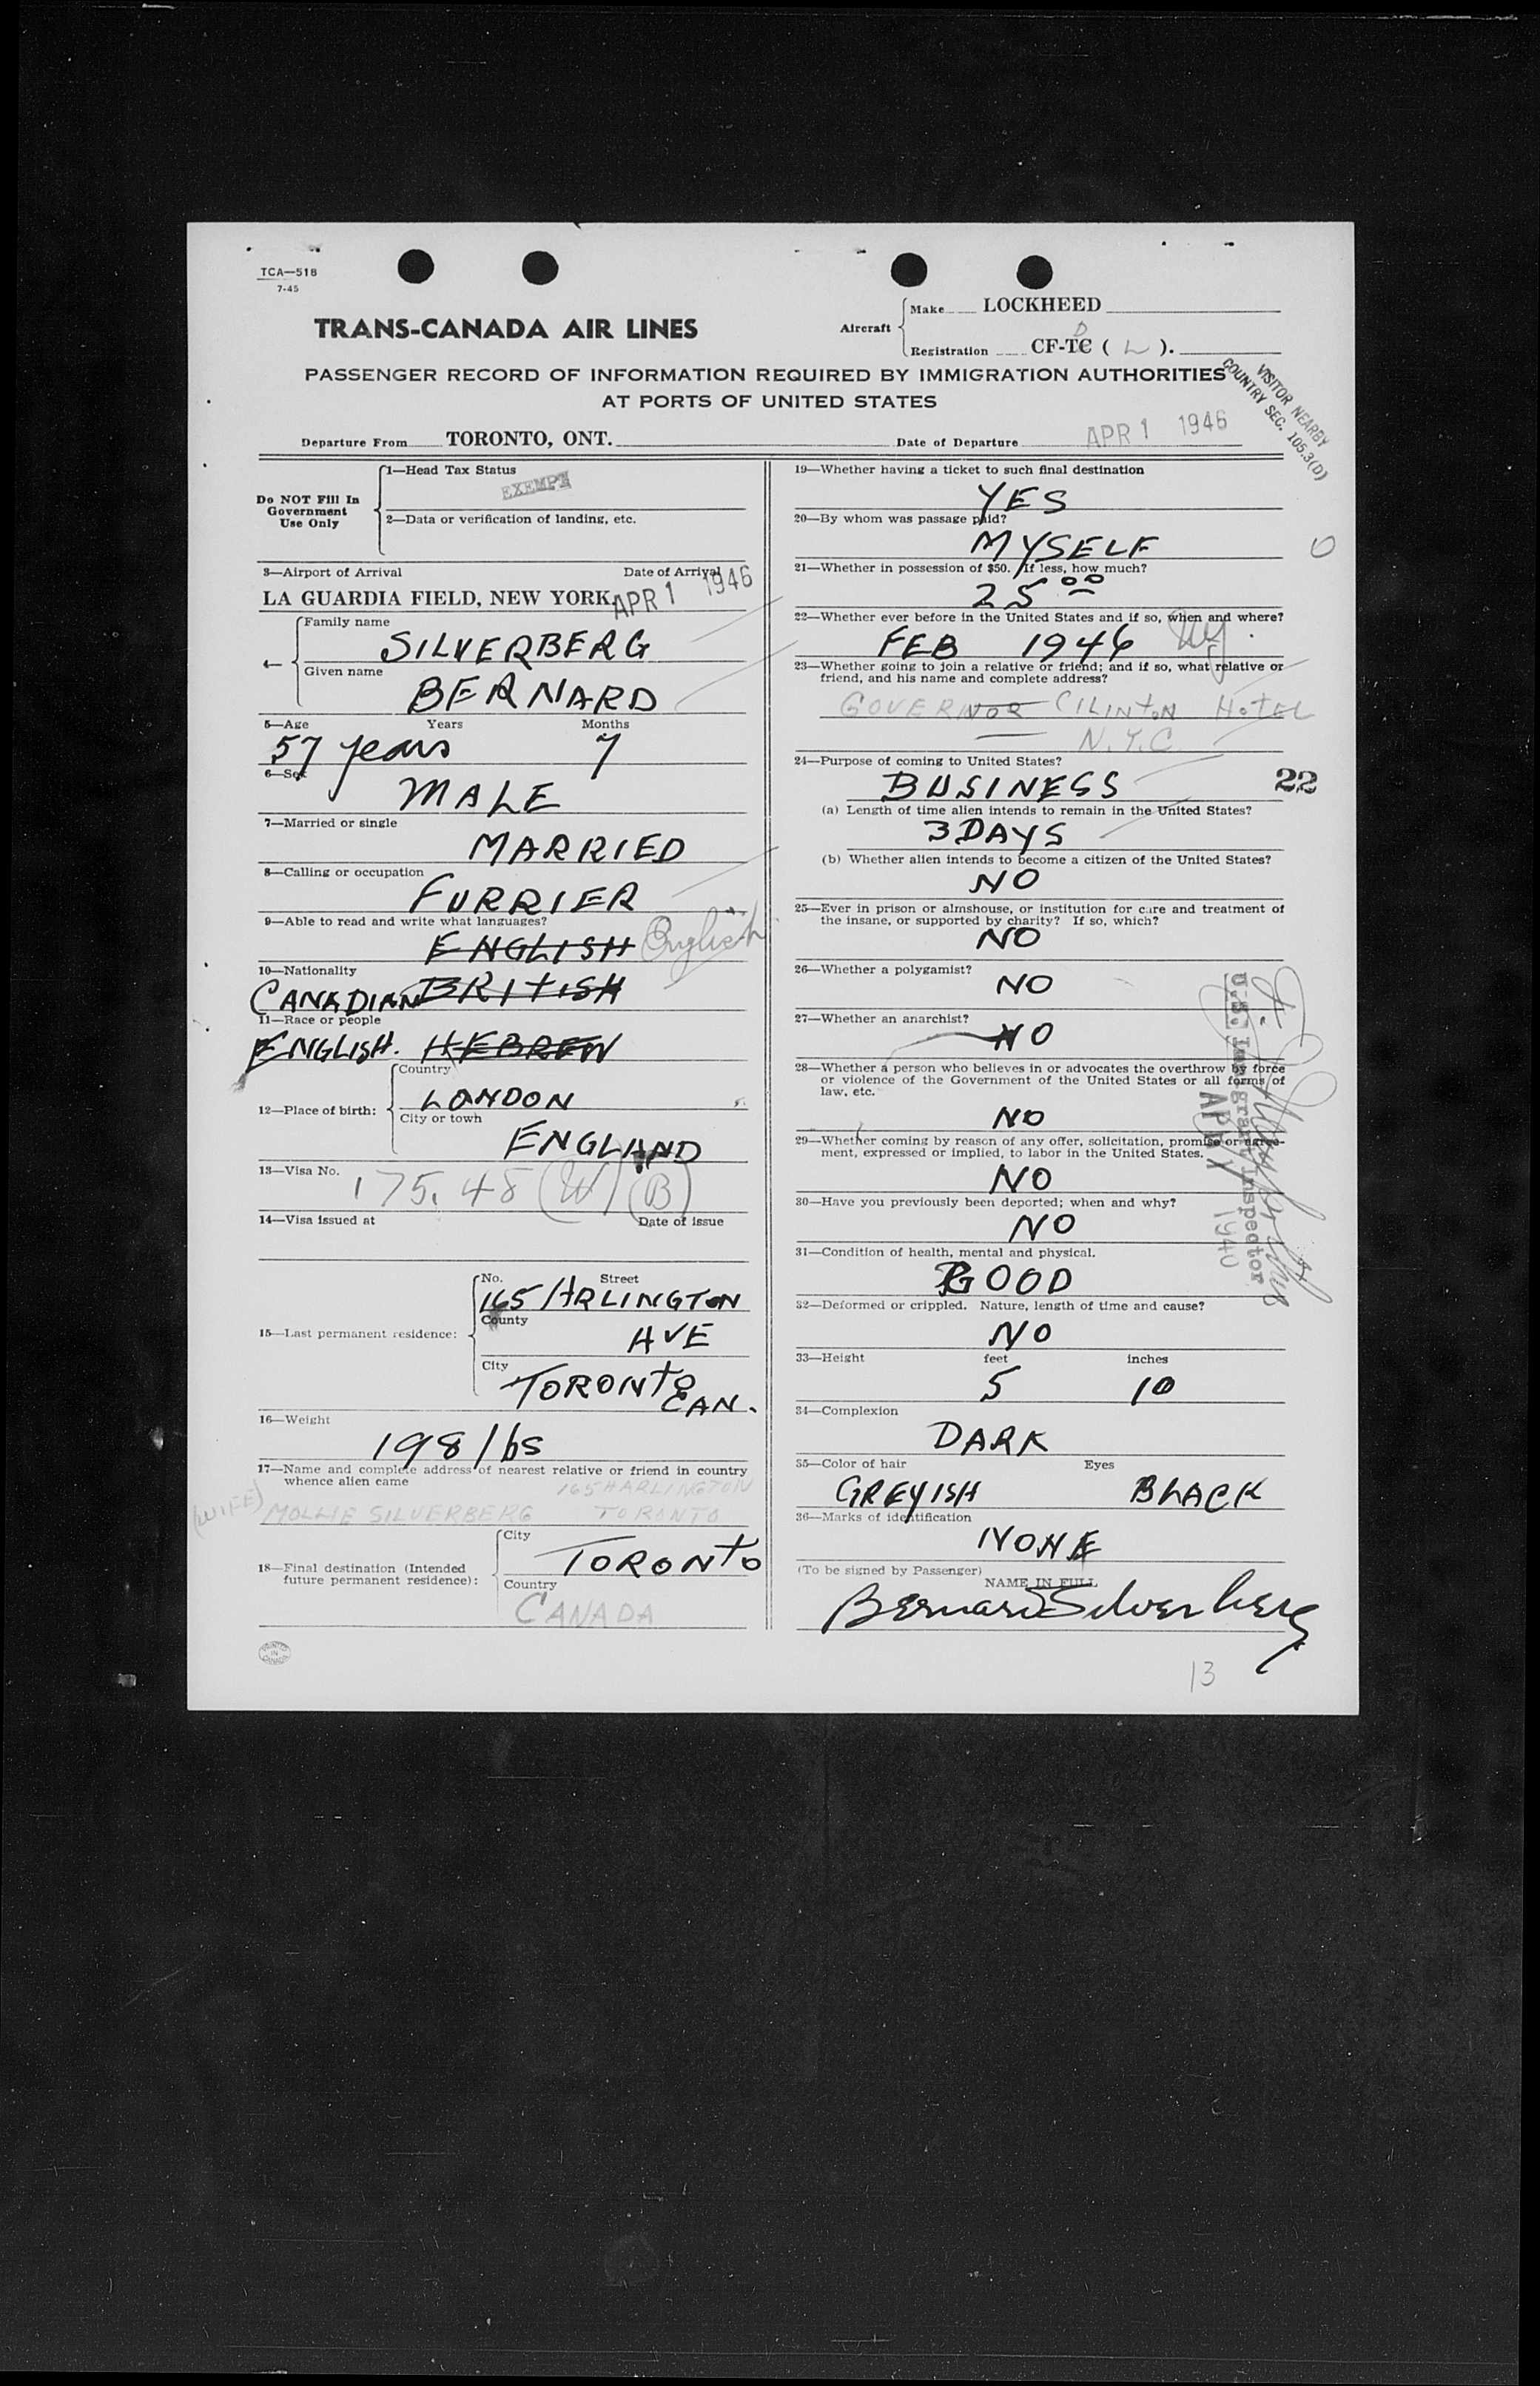 TCA—518
7-45
TRANS-CANADA AIR LINES
Aircraft
Make LOCKHEED
Registration CF-TC ( L ).
D
PASSENGER RECORD OF INFORMATION REQUIRED BY IMMIGRATION AUTHORITIES
AT PORTS OF UNITED STATES
VISITOR NEARBY
COUNTRY SEC. 105.3(D)
Departure From TORONTO, ONT. Date of Departure APR 1 1946
Do NOT Fill In
Government
Use Only
1—Head Tax Status
EXEMPT
2—Data or verification of landing, etc.
3—Airport of Arrival Date of Arrival
LA GUARDIA FIELD, NEW YORK, APR 1 1946
4—
Family name
SILVERBERG
Given name
BERNARD
5—Age Years Months
57 years 7
6—Sex
MALE
7—Married or single
MARRIED
8—Calling or occupation
FURRIER
9—Able to read and write what languages?
ENGLISH English
10—Nationality
CANADIAN BRITISH
11—Race or people
ENGLISH. HEBREW
12—Place of birth:
Country
LONDON
City or town
ENGLAND
13—Visa No.
175.48 (W) (B)
14—Visa issued at Date of issue
15—Last permanent residence:
No. Street
165 ARLINGTON
County
AVE
City
TORONTO
CAN.
16—Weight
198 lbs
17—Name and complete address of nearest relative or friend in country
whence alien came
165 HARLINGTON
(WIFE) MOLLIE SILVERBERG TORONTO
18—Final destination (Intended
future permanent residence):
City
TORONTO
Country
CANADA
PRINTED IN CANADA
19—Whether having a ticket to such final destination
YES
20—By whom was passage paid?
MYSELF
0
21—Whether in possession of $50. If less, how much?
25 00
22—Whether ever before in the United States and if so, when and where?
FEB 1946 NY
23—Whether going to join a relative or friend; and if so, what relative or
friend, and his name and complete address?
GOVERNOR CILINTON HOTEL
N.Y.C.
24—Purpose of coming to United States?
BUSINESS
22
(a) Length of time alien intends to remain in the United States?
3 DAYS
(b) Whether alien intends to become a citizen of the United States?
NO
25—Ever in prison or almshouse, or institution for care and treatment of
the insane, or supported by charity? If so, which?
NO
26—Whether a polygamist?
NO
27—Whether an anarchist?
NO
28—Whether a person who believes in or advocates the overthrow by force
or violence of the Government of the United States or all forms of
law, etc.
NO
29—Whether coming by reason of any offer, solicitation, promise or agree-
ment, expressed or implied, to labor in the United States.
NO
30—Have you previously been deported; when and why?
NO
U.S. Immigrant Inspector
APR 1 1946
31—Condition of health, mental and physical.
GOOD
32—Deformed or crippled. Nature, length of time and cause?
NO
33—Height feet inches
5 10
34—Complexion
DARK
35—Color of hair Eyes
GREYISH BLACK
36—Marks of identification
NONE
(To be signed by Passenger)
NAME IN FULL
Bernard Silverberg
13